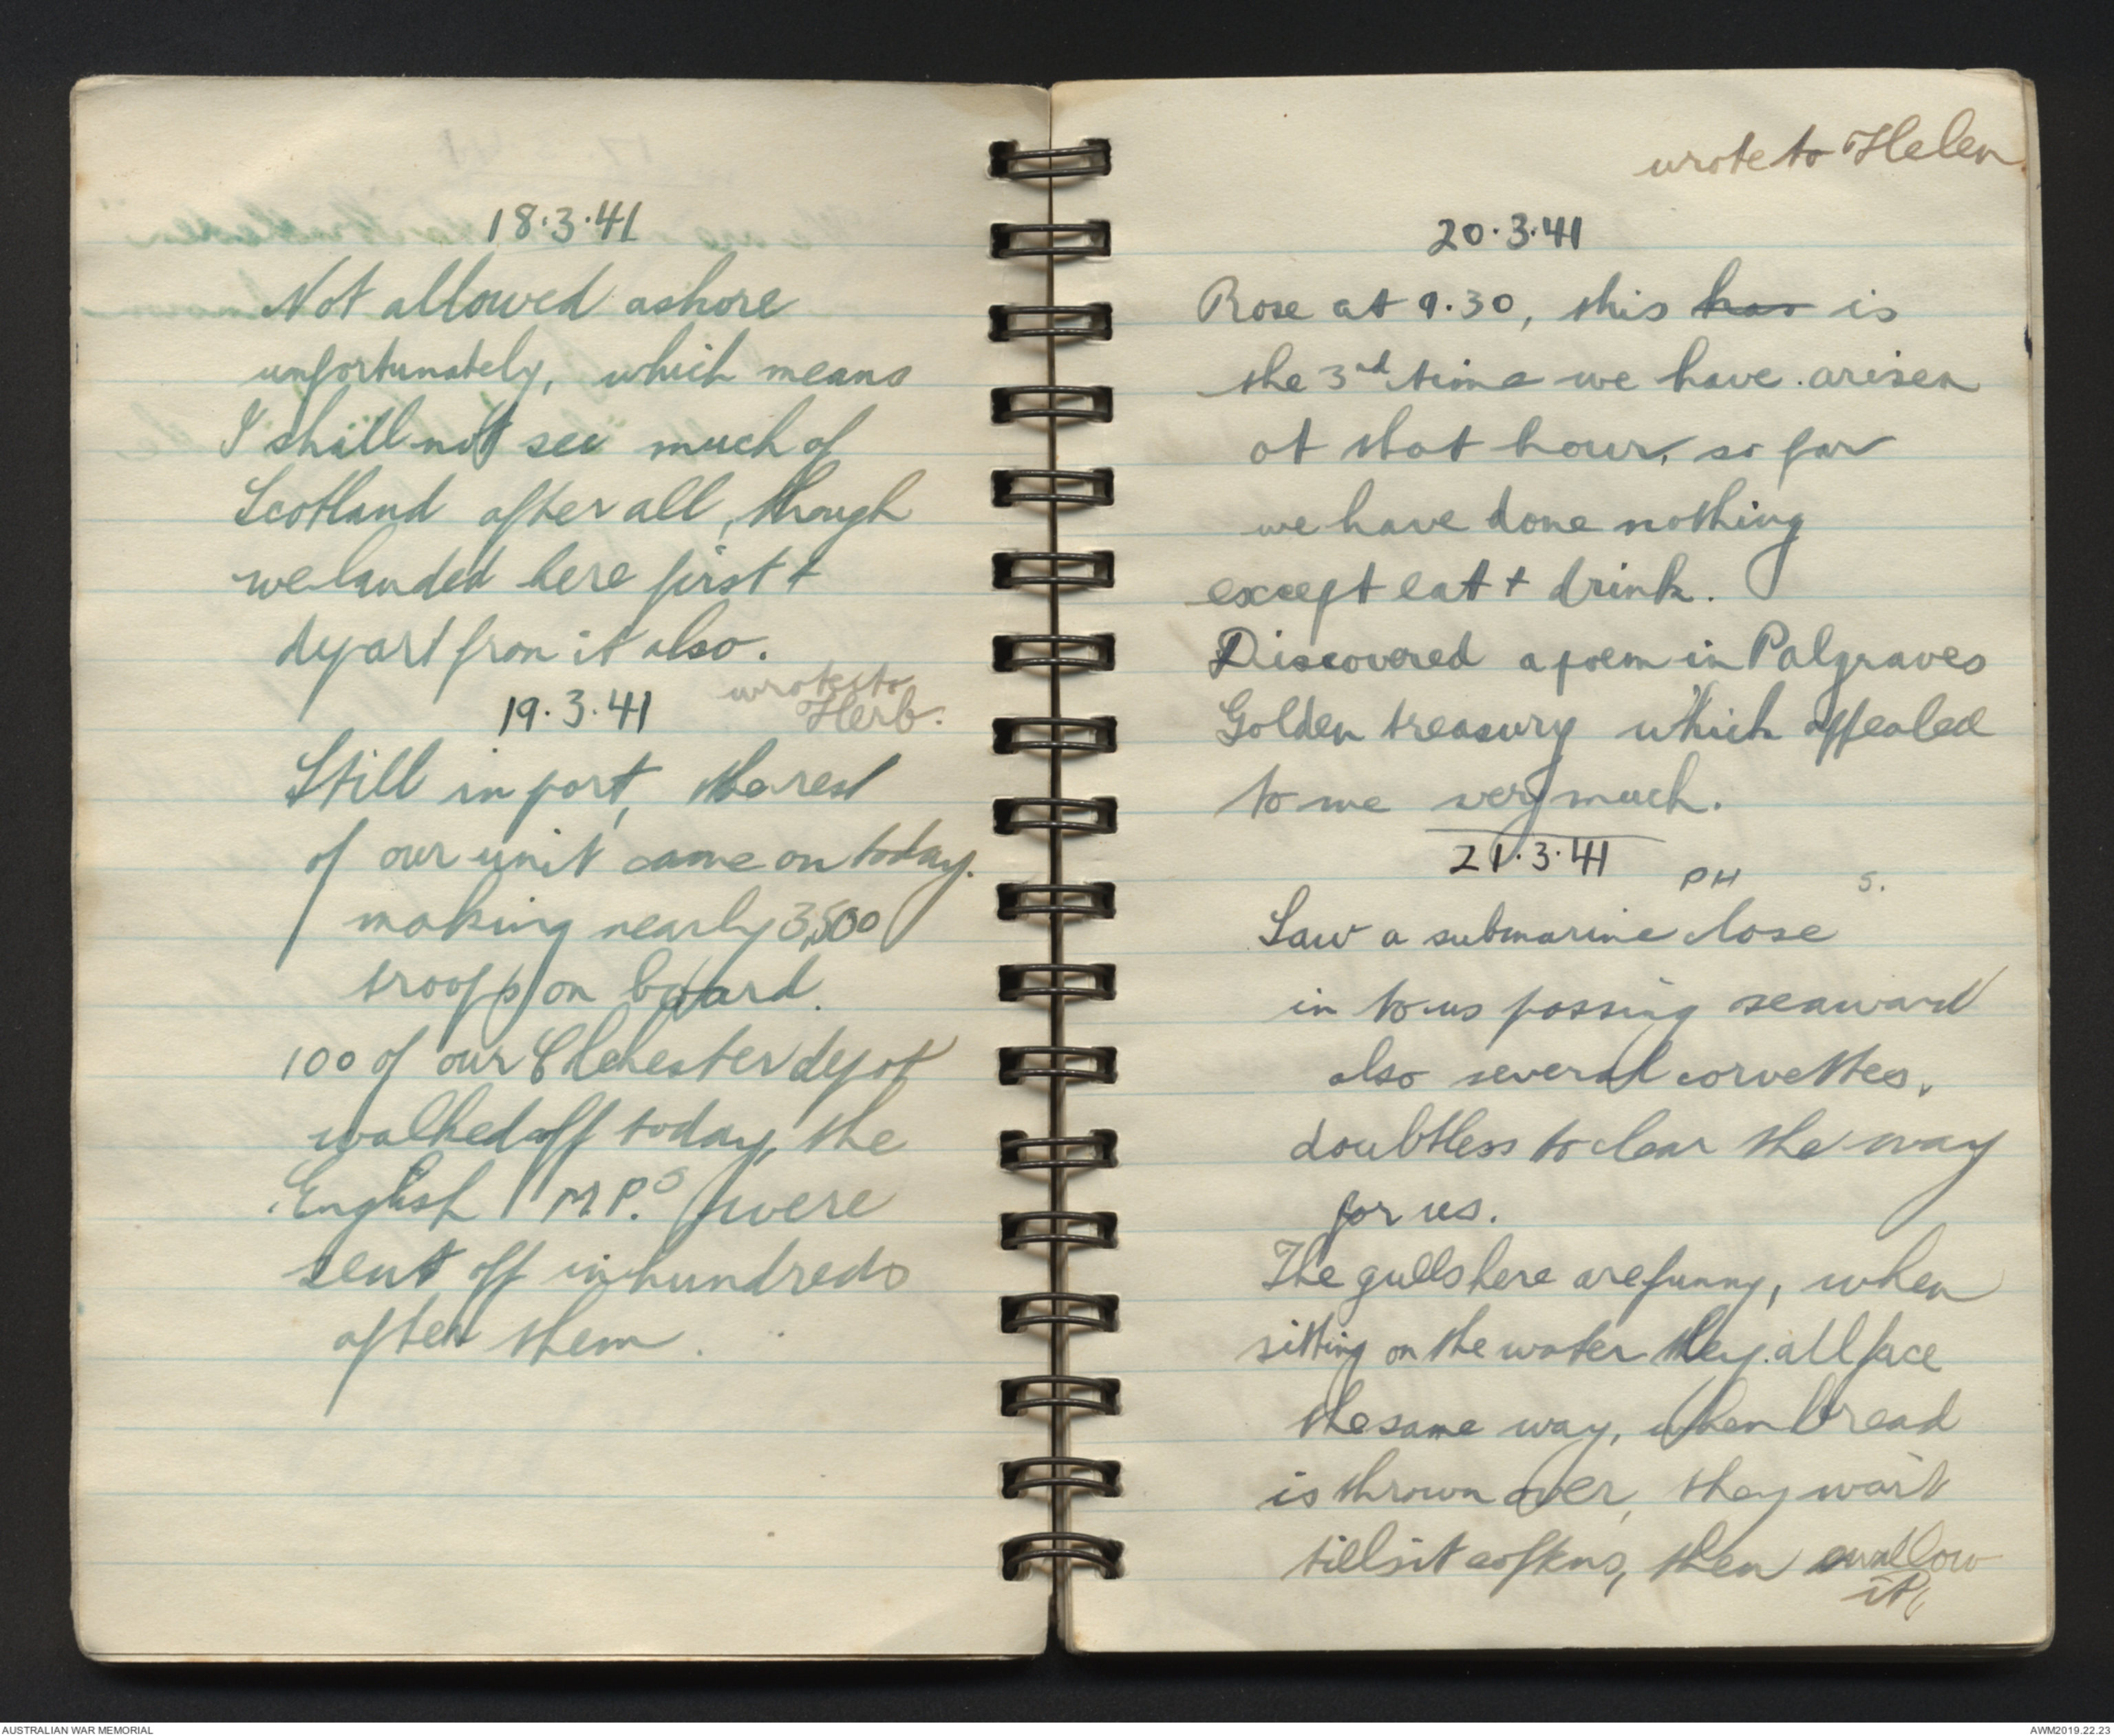 18.3.41
Not allowed ashore
unfortunately, which means
I shall not see much of
Scotland after all, though
we landed here first +
depart from it also.
19.3.41 wrote to
Herb.
Still in port, the rest
of our unit came on today.
making nearly 3,500
troops on board.
100 of our Chichester depot
walked off today, the
English M.P.s were
sent off in hundreds
after them.
wrote to Helen
20.3.41
Rose at 9.30, this has is
the 3rd time we have arisen
at that hour, so far
we have done nothing
except eat + drink.
Discovered a poem in Palgraves
Golden treasury which appealed
to me very much.
21.3.41 PH S.
Saw a submarine close
in to us passing seaward
also several corvettes,
doubtless to clear the way
for us.
The gulls here are funny, when
sitting on the water they all face
the same way, when bread
is thrown over, they wait
till it softens, then swallow
it.
AUSTRALIAN WAR MEMORIAL
AWM2019.22.23